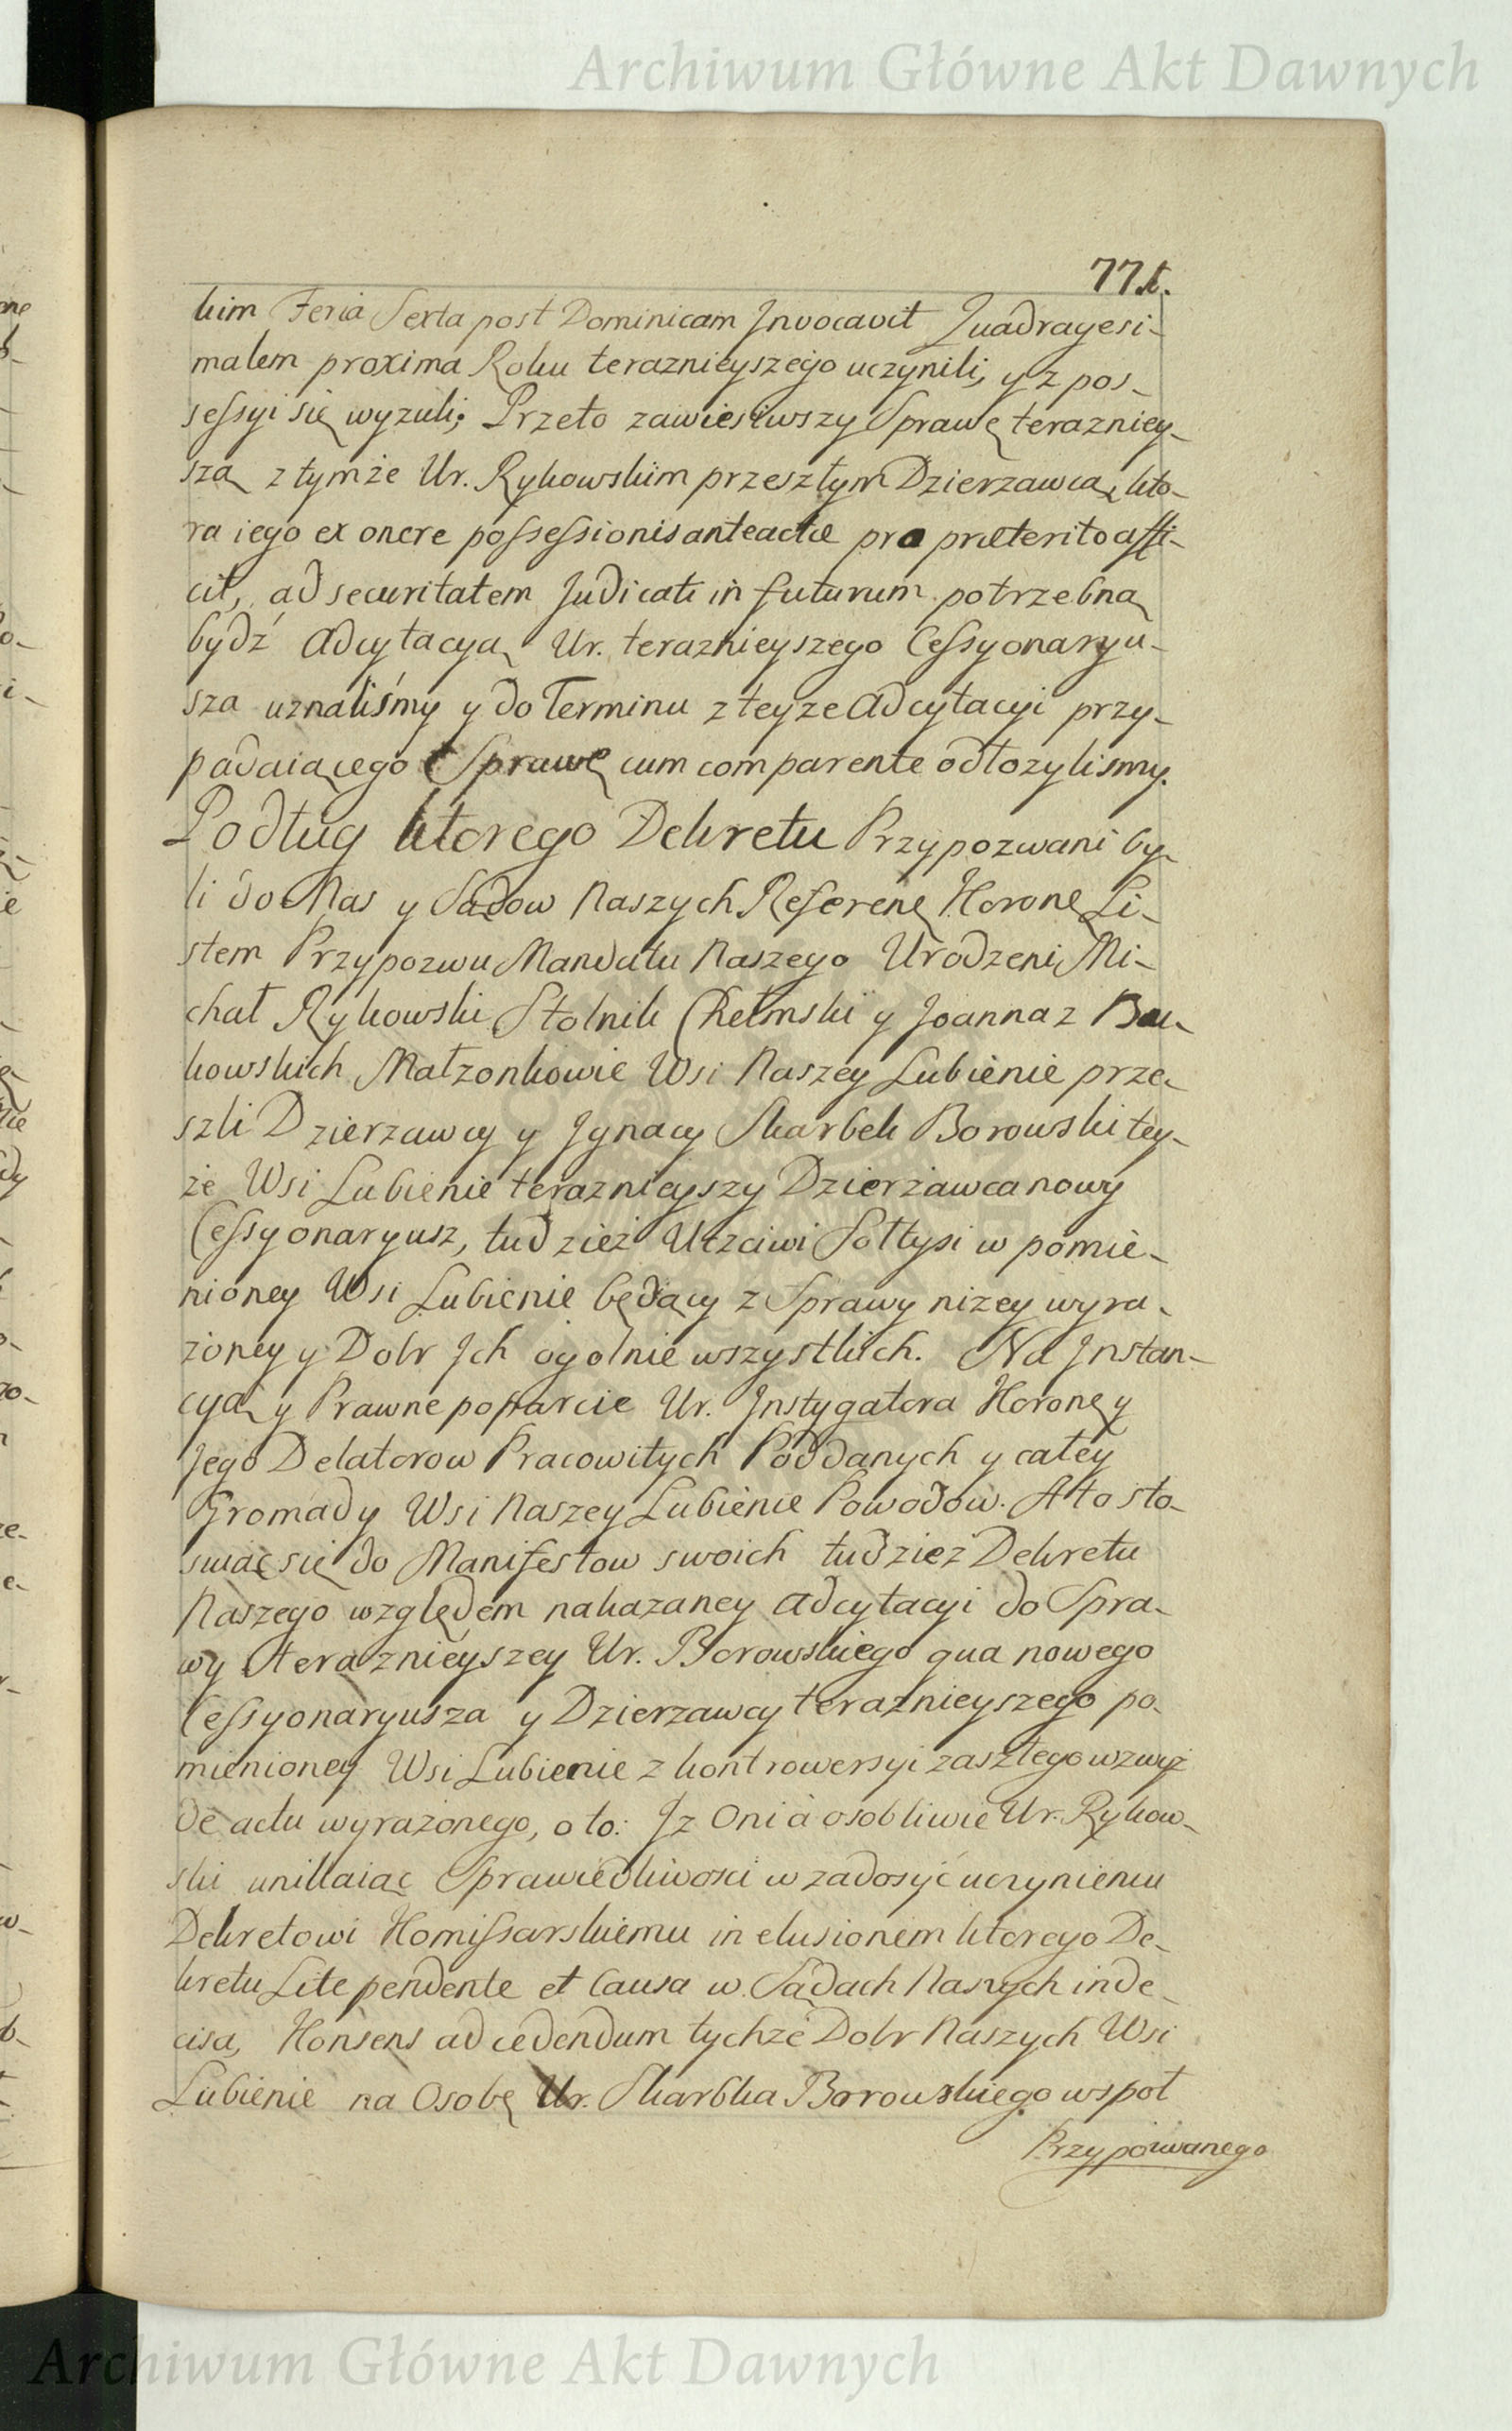 Archiwum Główne Akt Dawnych
771.
kim Feria Sexta post Dominicam Invocavit Quadragesi-
malem proxima Roku teraznieyszego uczynili, y z pos-
sessyi się wyzuli; Przeto zawiesiwszy Sprawę terazniey-
szą z tymże Ur. Rykowskim przeszłym Dzierzawcą, kto-
ra iego ex onere possessionis anteactæ pro præterito affi-
cit, ad securitatem Judicati in futurum potrzebną
bydź Adcytacyą Ur. teraznieyszego Cessyonaryu-
sza uznaliśmy y do Terminu z teyze Adcytacyi przy-
padaiącego Sprawę cum comparente odłozylismy.
Podług ktorego Dekretu Przypozwani by-
li do Nas y Sądow Naszych Referen. Koron. Li-
stem Przypozwu Mandatu Naszego Urodzeni Mi-
chał Rykowski Stolnik Chełmski y Joanna z Bu-
kowskich Małzonkowie Wsi Naszey Lubienie prze-
szli Dzierzawcy y Ignacy Skarbek Borowski tey-
że Wsi Lubienie teraznieyszy Dzierżawca nowy
Cessyonaryusz, tudzież Uczciwi Sołtysi w pomie-
nioney Wsi Lubienie będący z Sprawy nizey wyra-
żoney y Dobr Ich ogolnie wszystkich. Na Instan-
cyą y Prawne poparcie Ur. Instygatora Koron. y
Jego Delatorow Pracowitych Poddanych y całey
Gromady Wsi Naszey Lubienie Powodow. A to sto-
suiąc się do Manifestow swoich tudzież Dekretu
Naszego względem nakazaney Adcytacyi do Spra-
wy teraznieyszey Ur. Borowskiego qua nowego
Cessyonaryusza y Dzierzawcy teraznieyszego po-
mienioney Wsi Lubienie z kontrowersyi zaszłego wzwyż
de actu wyrażonego, o to: Iz Oni a osobliwie Ur. Rykow-
ski unikaiąc Sprawiedliwosci w zadosyć uczynieniu
Dekretowi Komissarskiemu in elusionem ktorego De-
kretu Lite pendente et Causa w Sądach Naszych inde-
cisa, Konsens ad cedendum tychże Dobr Naszych Wsi
Lubienie na Osobę Ur. Skarbka Borowskiego wspoł
Przypozwanego
Archiwum Główne Akt Dawnych